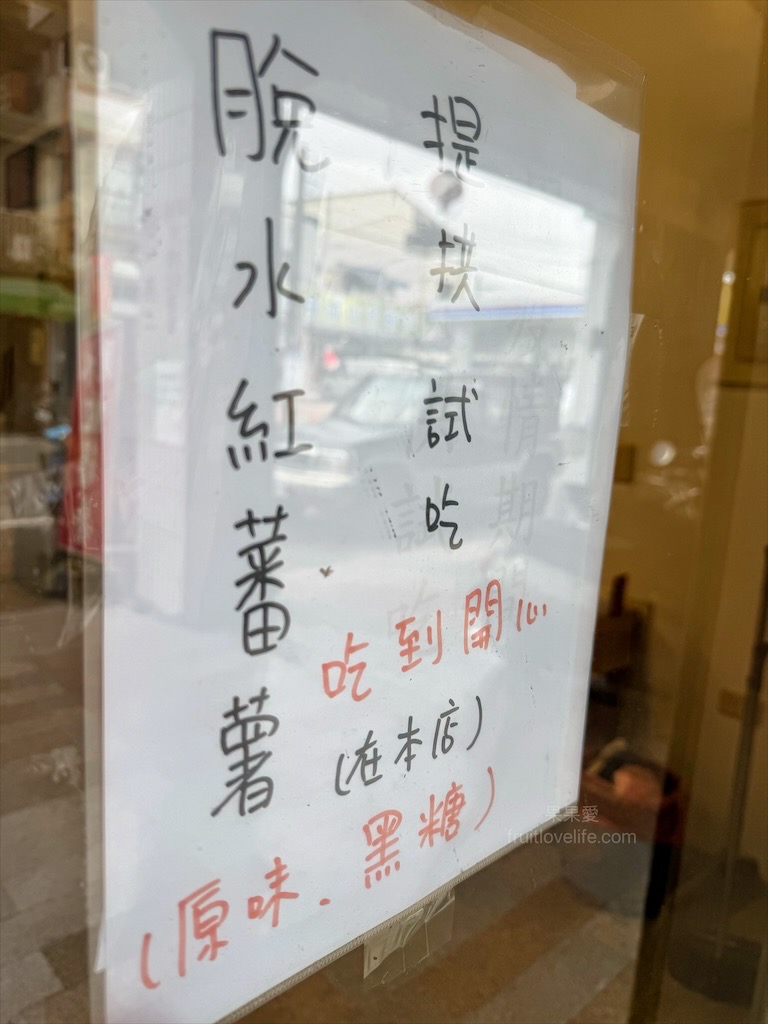 提拱試吃
吃到開心
(在本店)
脫水紅蕃薯
(原味、黑糖)
情期間
試吃
果果愛
fruitlovelife.com